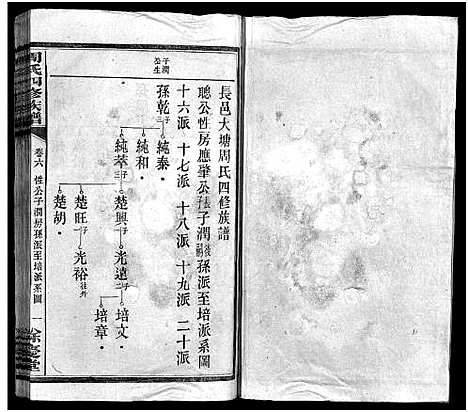 長邑大塘周氏四修族譜
聰公性房應肇公長子子潤後裔孫派至培派系圖
十六派 十七派 十八派 十九派 二十派
子潤公生
孫乾子三
純泰·
純和·
純萃子三
楚興子一
光遠子二
培文·
培章·
楚旺子一
光裕往外
楚胡·
周氏四修族譜
卷六
性公子潤房孫派至培派系圖
一